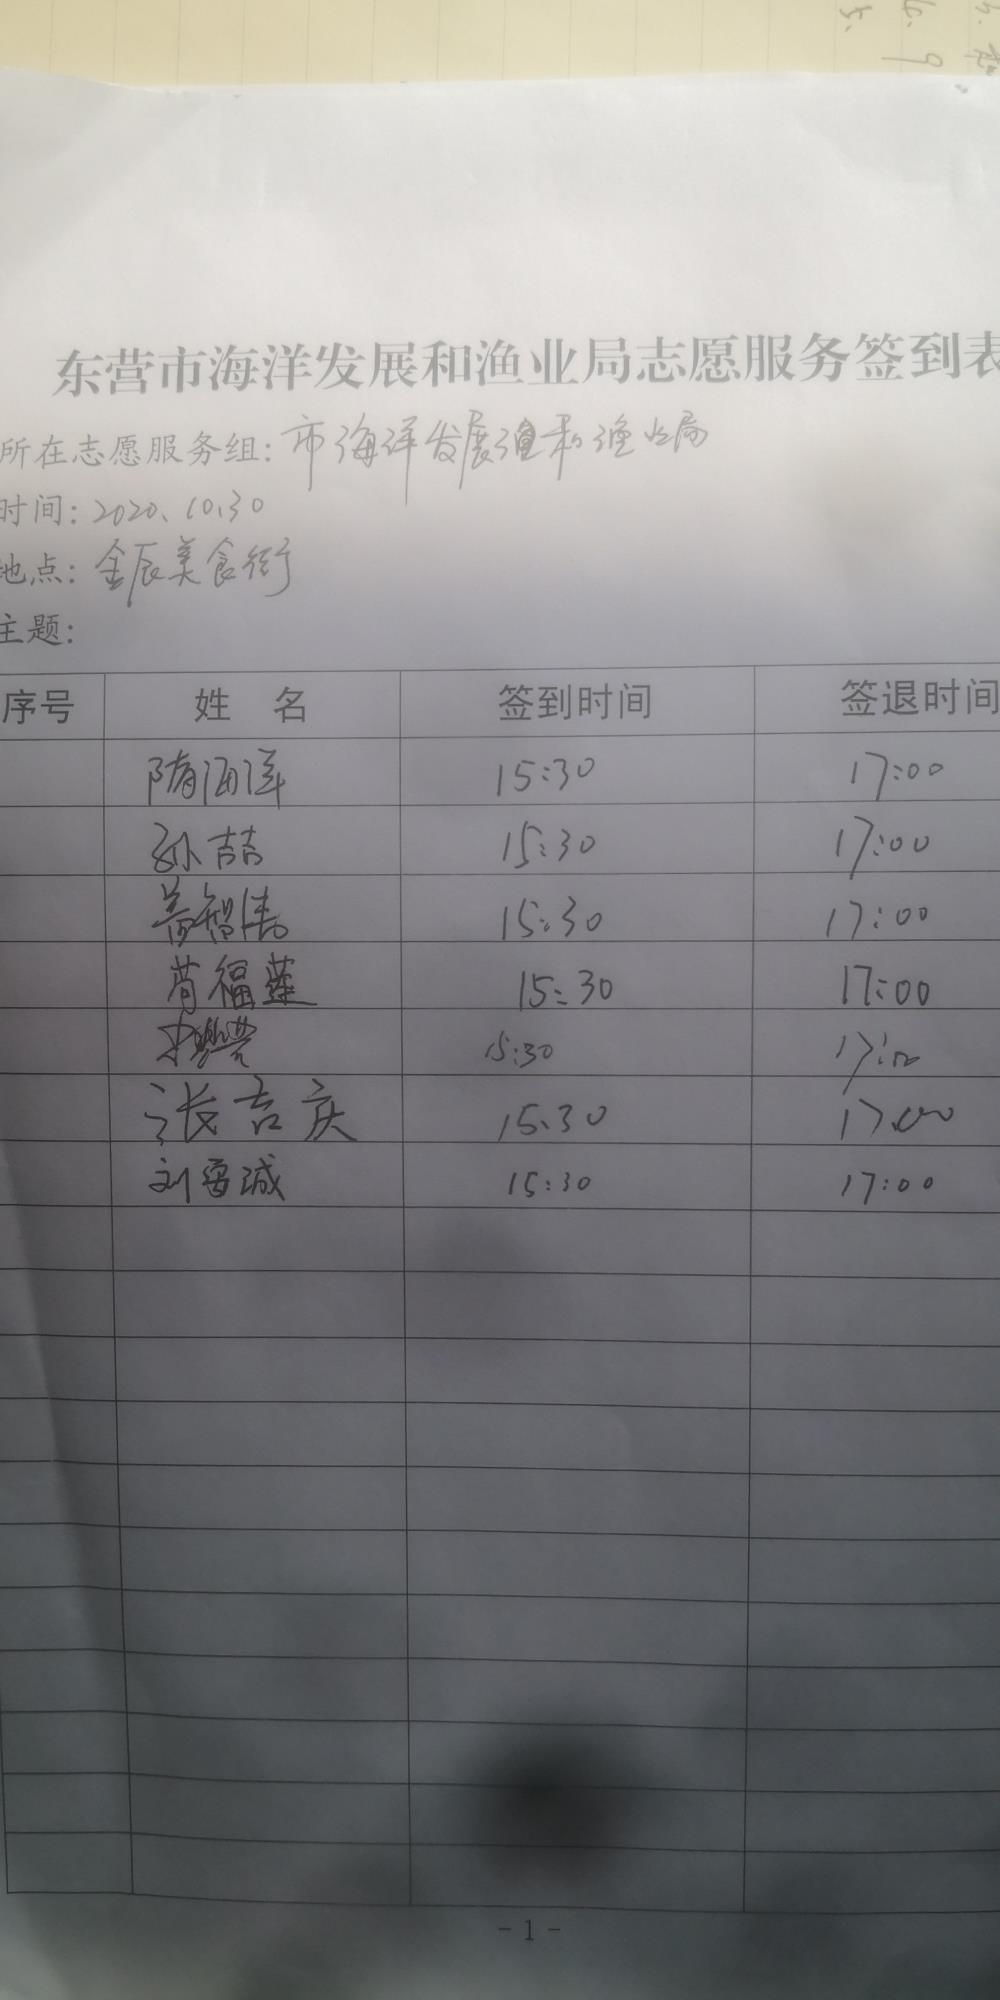 东营市海洋发展和渔业局志愿服务签到表
所在志愿服务组：市海洋发展和渔业局
时间：2020.10.30
地点：金辰美食街
主题：
序号 姓 名 签到时间 签退时间
隋海洋 15:30 17:00
孙喆 15:30 17:00
15:30 17:00
福莲 15:30 17:00
15:30 17:00
张吉庆 15:30 17:00
刘雷诚 15:30 17:00
- 1 -